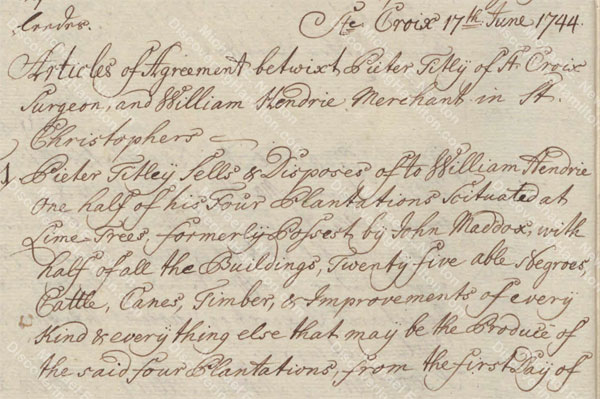 Leedes.
Ste Croix 17th June 1744.
Articles of Agreement betwixt Pieter Titlÿ of St Croix
Surgeon, and William Hendrie Merchant in St.
Christophers
1 Pieter Titleÿ Sells & Disposes of to William Hendrie
One half of his Four Plantations Scituated at
Lime-Trees formerly Possest by John Maddox, with
half of all the Buildings, Twenty five able Negroes,
Cattle, Canes, Timber, & Improvements of every
Kind & every thing else that may be the Produce of
the said four Plantations, from the first Day of